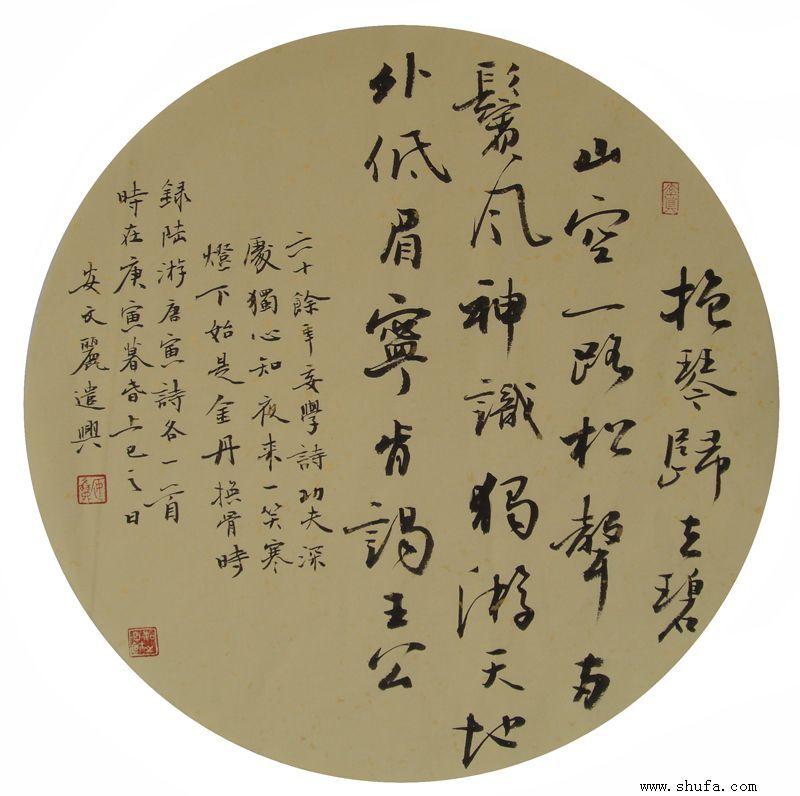 抱琴歸去碧
山空一路松聲兩
鬢風神識獨游天地
外低眉寧肯謁王公
六十餘年妄學詩功夫深
處獨心知夜來一笑寒
燈下始是金丹換骨時
録陸游唐寅詩各一首
時在庚寅暮春上巳之日
安文麗遣興
www.shufa.com